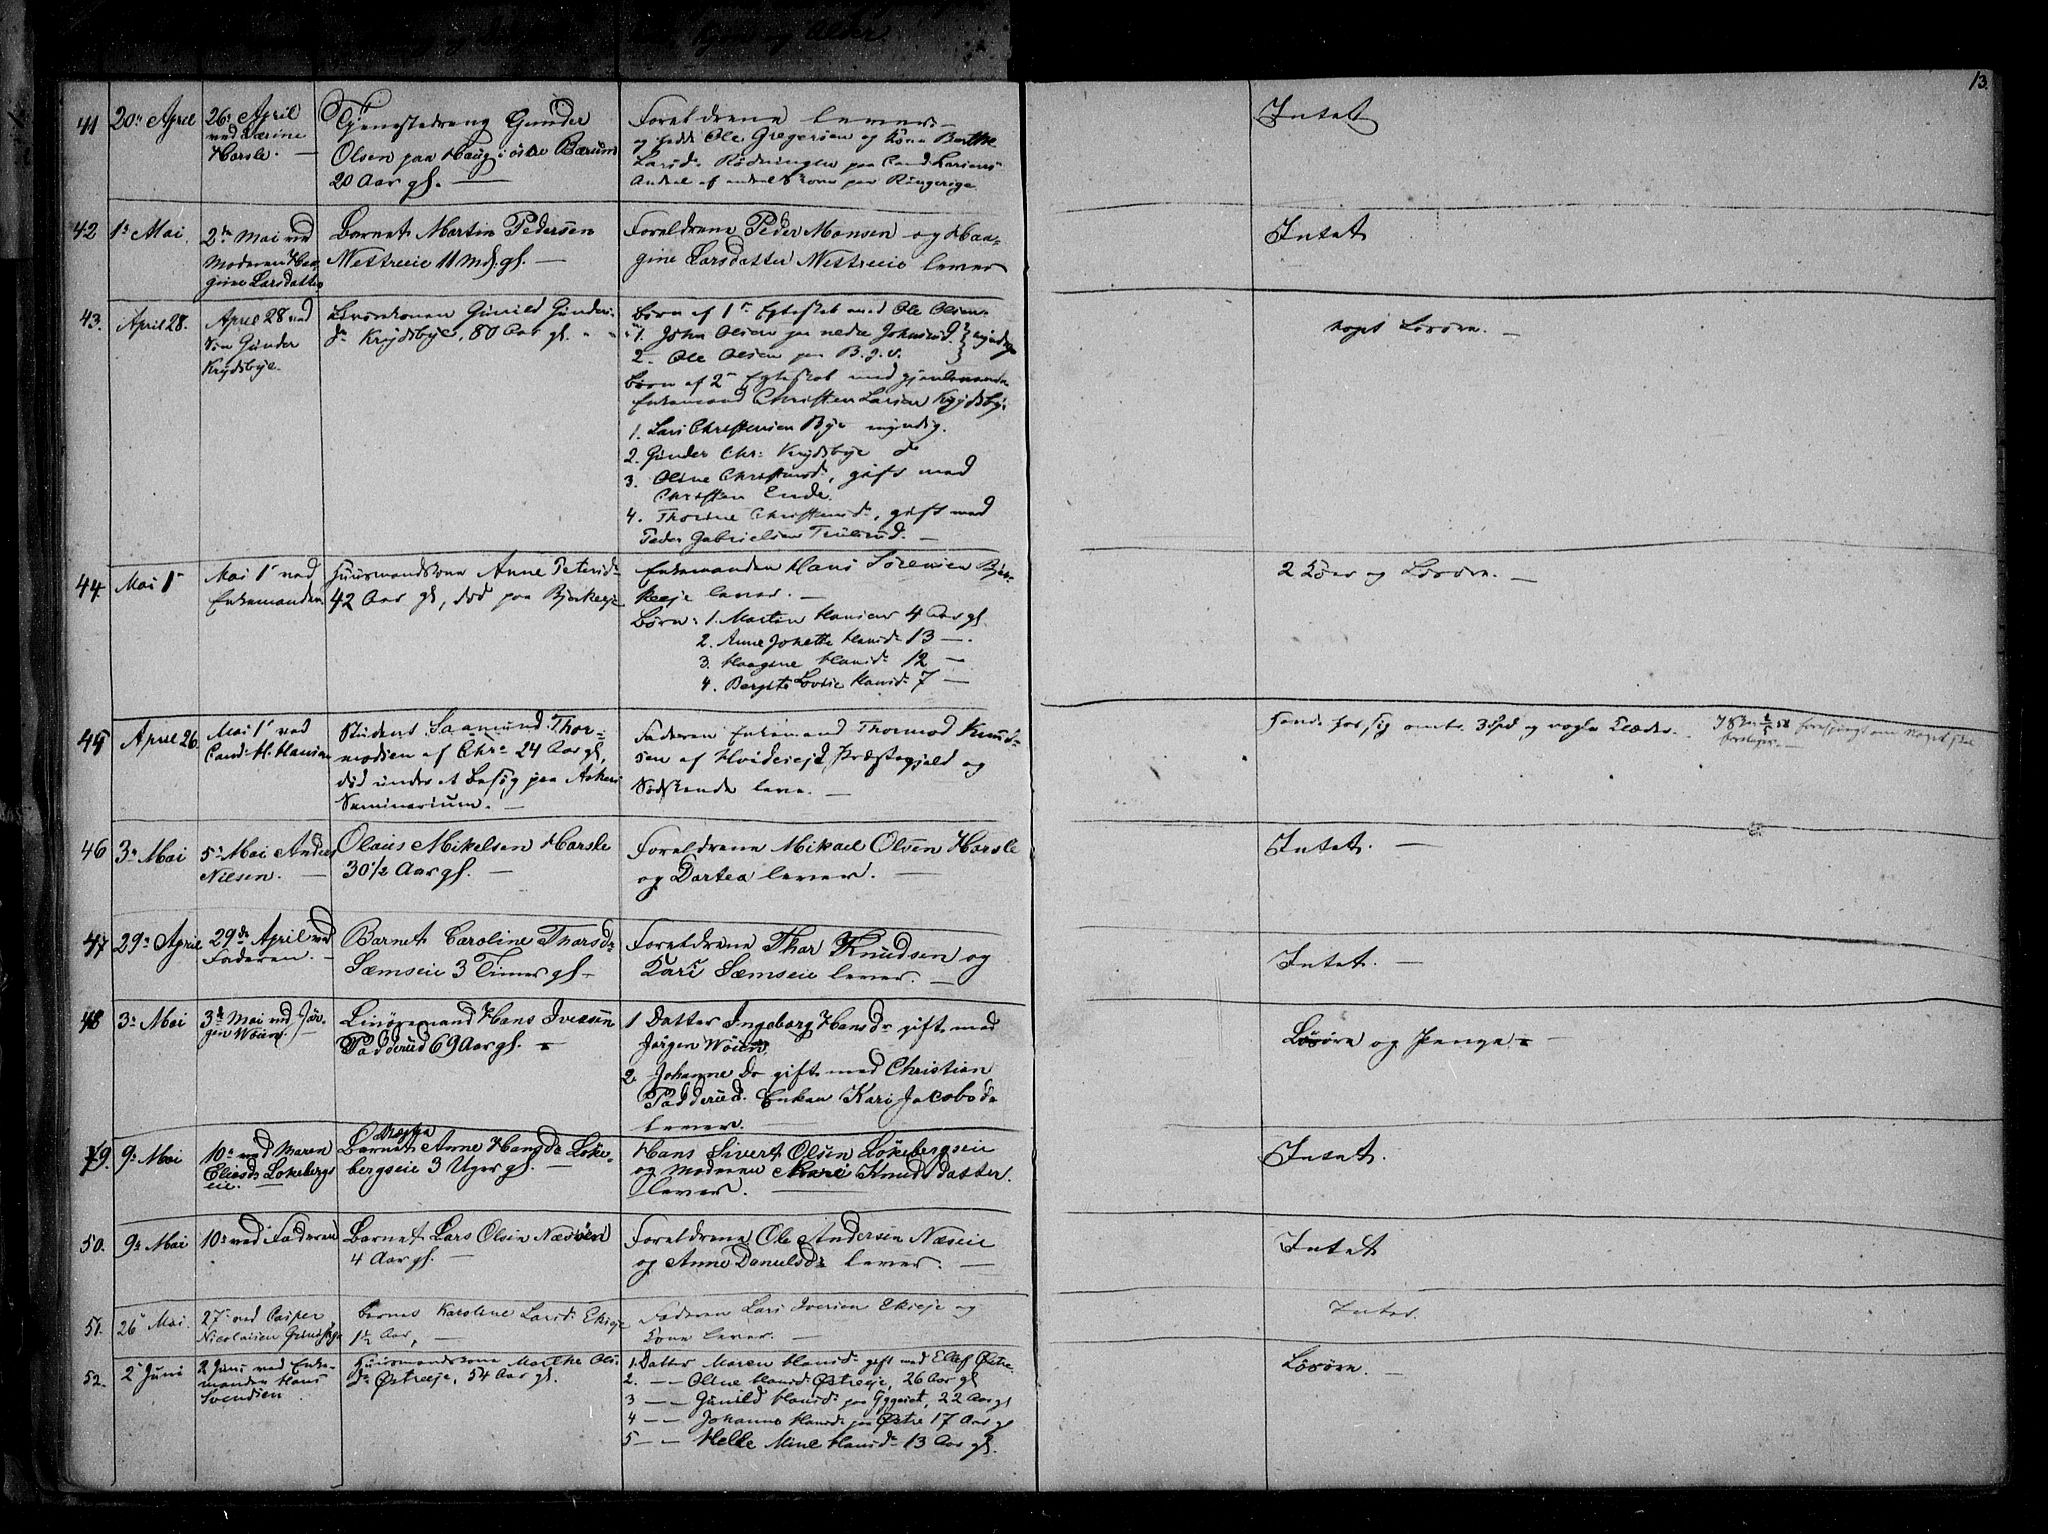 Kjøn og Alder
13.
41 20de April 26de April
ved Karine
Harsle. —
Tjenestedreng Gunder
Olsen paa Haug i østre Bærum
20 Aar gl. —
Forældrene lever —
og hedde Ole Gregersen og Kone Berthe
Larsd.
paa Ringerige
Intet
42 1ste Mai. 2den Mai ved
Moderen Haa-
gine Larsdatter
Barnet Martin Pedersen
Nestreeie 11 Md. gl. —
Forældrene Peder Monsen og Haa-
gine Larsdatter Nestreeie lever
Intet
43. April 28. April 28 ved
Søn Gunder
Krydsbye.
Gunild Gunders-
dr Krydsbye, 80 Aar gl. " "
Børn af 1ste Egteskab med Ole Olsen.
1. John Olsen paa nedre Johnsrud. } myndige
2. Ole Olsen paa B. g. s.
Børn af 2det Egteskab med gjenlevende
Enkemand Christen Larsen Krydsby:
1. Lars Christensen Bye myndig.
2. Gunder Chr: Krydsbye do
3. Oline Christensd., gift med
Christen Ende.
4. Thorine Christensd., gift med
Peder Gabrielsen Trulsrud. —
noget Løsøre. —
44 Mai 1ste Mai 1ste ved
Enkemanden
Huusmandskone Anne Petersd.
42 Aar gl, død paa Bjerkeeje
Enkemanden Hans Sørensen Bjer-
keeje lever. —
Børn: 1. Martin Hansen 4 Aar gl.
2. Anne Johette Hansd. 13 —.
3. Haagine Hansd. 12 —
4. Bergite Lovise Hansd. 7 —
2 Køer og Løsøre. —
45 April 26. Mai 1ste ved
Cand. H. Hansen
Student Saamund Thor-
modsen af Chra. 24 Aar gl,
død under et Besøg paa Asker
Seminarium. —
Faderen Enkemand Thormod Knud-
sen af Hvideseid Præstegjeld og
Sødskende leve. —
Havde hos sig omtr. 3 Spd. og nogle Klæder.
46 3de Mai 5te Mai Anders
Nilsen. —
Olaus Mikelsen Harsle
30 1/2 Aar gl. —
Forældrene Mikael Olsen Harsle
og Dortea lever. —
Intet. —
47 29de April 29de April ved
Faderen. —
Barnet Caroline Thorsdr
Sæmseie 3 Timer gl —
Forældrene Thor Knudsen og
Kari Sæmseie lever. —
Intet. —
48 3de Mai 3de Mai ved Jør-
gen Wøien. —
Hans Iversen
Padderud 69 Aar gl. —
1 Datter Ingeborg Hansdr gift med
Jørgen Wøien
2. Johanne Do gift med Christian
Padderud. Enken Kari Jacobsdr
lever. —
Løsøre og Penge. —
49. 9de Mai 10de ved Maren
Eliasd. Løkebergs
eie. —
Barnet Anne Hansdr Løke-
bergseie 3 Uger gl. —
Hans Sivert Olsen Løkebergseie
og Moderen Mari Knudsdatter.
lever. —
Intet.
50. 9de Mai 10de ved Faderen
Barnet Lars Olsen Næseie
4 Aar gl. —
Forældrene Ole Andersen Næseie
og Anne Danielsdr lever. —
Intet
51. 26de Mai. 27de ved Casper
Nicolaisen
Barnet Karoline Larsd. Ekeje
1 1/2 Aar, —
Faderen Lars Iversen Ekeje og
Kone lever. —
Intet.
52. 2den Juni 2 Juni ved Enke-
manden Hans
Svendsen.
Huusmandskone Marthe Ols-
dr Østreeje, 54 Aar gl.
1. Datter Maren Hansd. gift med Elef Østre.
2. — " — Oline Hansd. Østreeje, 26 Aar gl
3 — " — Gunild Hansd. paa Gyssest, 22 Aar gl
4 — " — Johanne Hansd. paa Østre 17 Aar gl
5 — " — Helle Mine Hansd. 13 Aar gl.
Løsøre. —